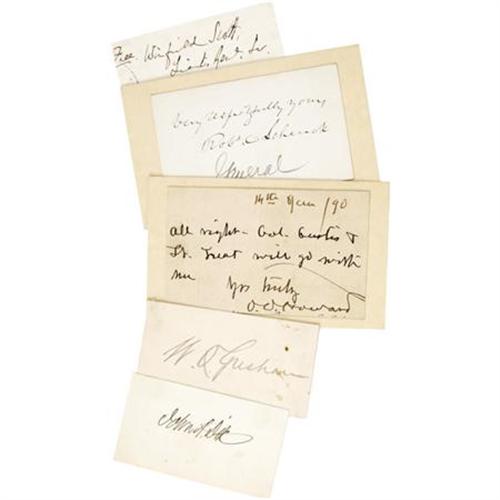 Free. Winfield Scott,
Very respectfully yours
Robt. C. Schenck
General
14th /90
all right - Col. Curtis &
Lt. Treat will go with
me
Yrs truly
O. O. Howard
W. Q. Gresham